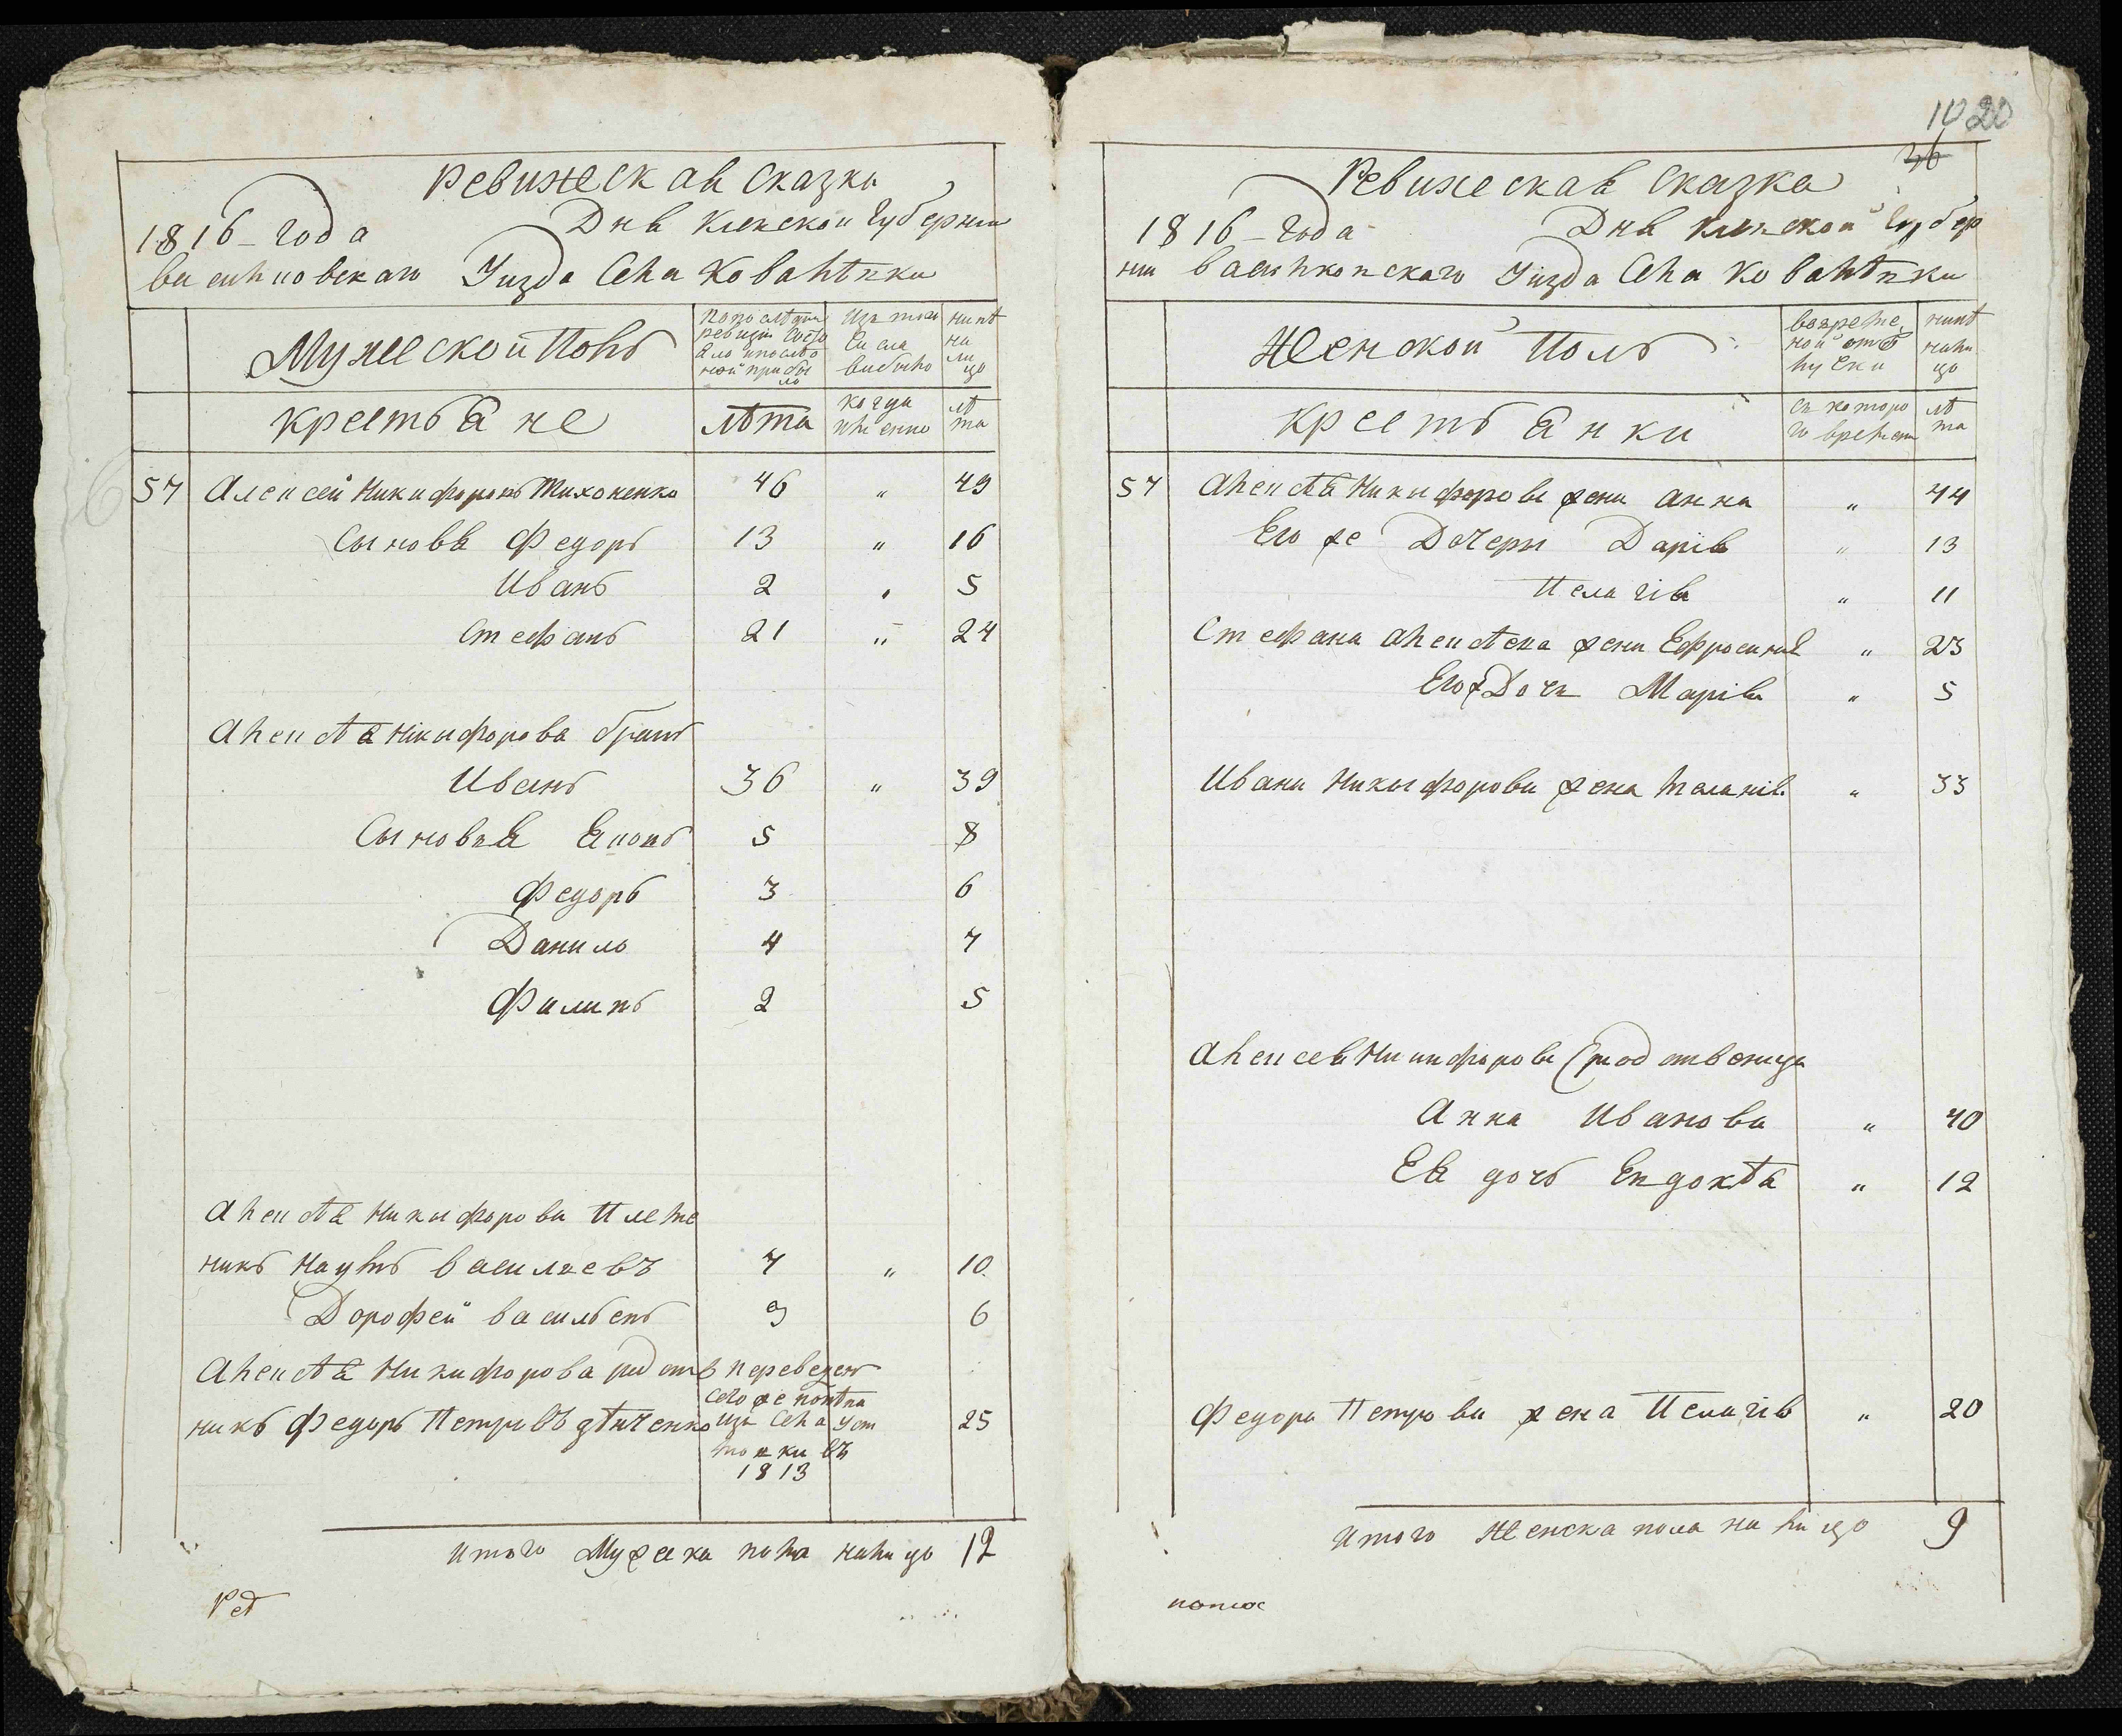 Ревижеская сказка
1816 - года Дня Киевской Губернии
Василковскаго Уизда Села Ковалѣвки
Мужеской Полъ
Попослѣдней ревизіи состояло и послѣ оной прибыло
Изъ того числа выбыло
нинѣ на лицо
крестьяне
лѣта
когда имянно
лѣта
57 Алексей Никифоровъ Тихоненко 46 " 49
Сыновя Федоръ 13 " 16
Иванъ 2 " 5
Стефанъ 21 " 24
Алексѣя Никифорова братъ
Иванъ 36 " 39
Сыновья Яковъ 5 8
Федоръ 3 6
Данило 4 7
Филипъ 2 5
Алексѣя Никифорова Племе
никъ Наумъ Василиевъ 7 " 10
Дорофей Васильевъ 3 6
Алексѣя Никифорова родств переведен
сего же повѣта
никъ Федоръ Петровъ дѣиченко изъ Села Уст 25
въ
1813
итого Мужеска пола налицо 12
1020
36
Ревижеская Сказка
1816 - Года Дня Киевской Губер
нии Василковскаго Уизда Села Ковалѣвки
Женской Полъ
вовременой отлучки
нинѣ налицо
крестьянки
съ которого времени
лѣта
57 Алексѣя Никифорова жена анна " 44
Его же Дочери Дарія " 13
Пелагія " 11
Стефана алексѣева жена Ефросинія " 23
Его ж Дочь Марія " 5
Ивана Никифорова жена Меланія " 33
Алексея Никифорова Сродственица
Анна Иванова " 40
Ея дочь Евдокѣя " 12
Федора Петрова жена Пелагія " 20
итого Женска пола на лицо 9